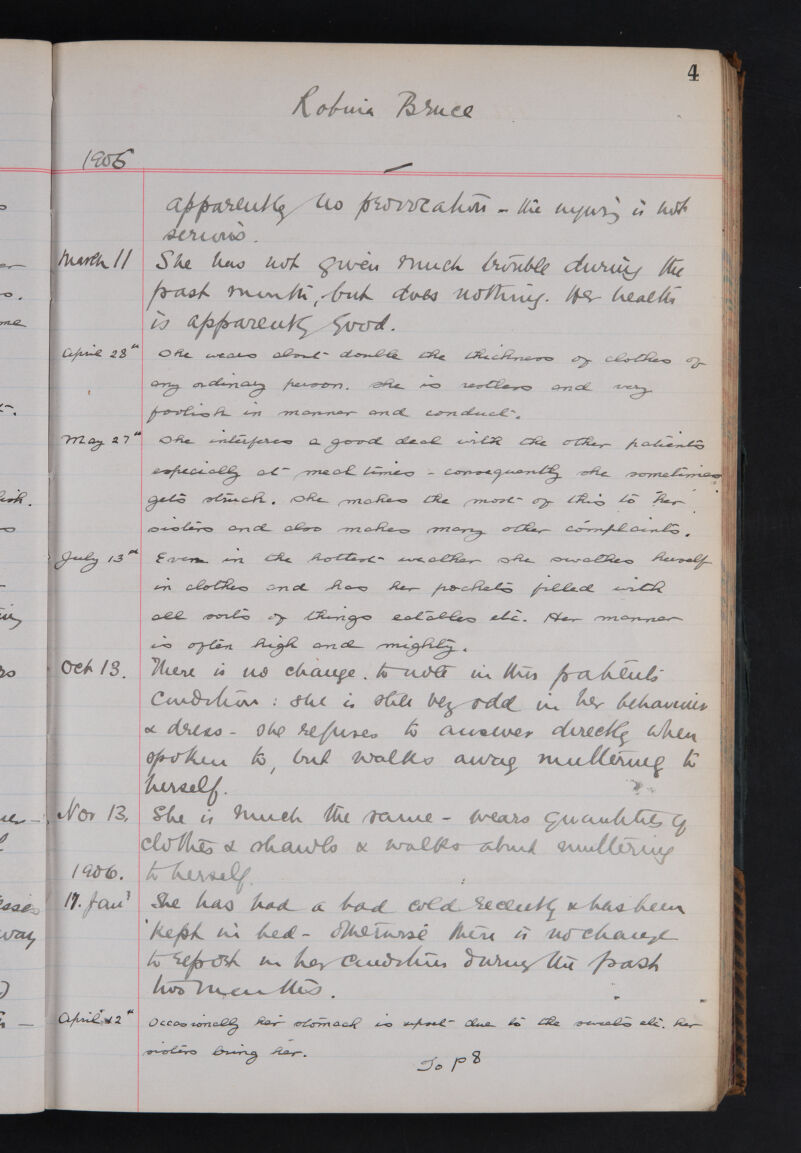 4
Robina Bruce
1905
apparently no provocation - the injury is not
serious.
March 11 She has not given much trouble during the
past month, but does nothing. Her health
is apparently good.
April 28th She wears about double the thickness of clothes of
any ordinary person. She is restless and very
foolish in manner and conduct.
May 27th She interferes a good deal with the other patients
especially at meal times - consequently she sometimes
gets struck. She makes the most of this to her
sisters and also makes many other complaints.
July 13th Even in the hottest weather she swathes herself
in clothes and has her pockets filled with
all sorts of things eatables etc. Her manner
is often high and mighty.
Oct 13. There is no change. to note in this patient's
condition: she is still very odd in her behaviour
& dress - she refuses to answer directly when
spoken to, but walks away muttering to
herself.
Nov 13. She is much the same - wears quantities of
clothes & shawls & walks about muttering
1906. to herself.
17. Jany She has had a bad cold recently & has been
kept in bed - otherwise there is no change
to report in her condition during the past
two months.
April 2th Occasionally her stomach is upset due to the sweets etc. her
sisters bring her.
To p 8